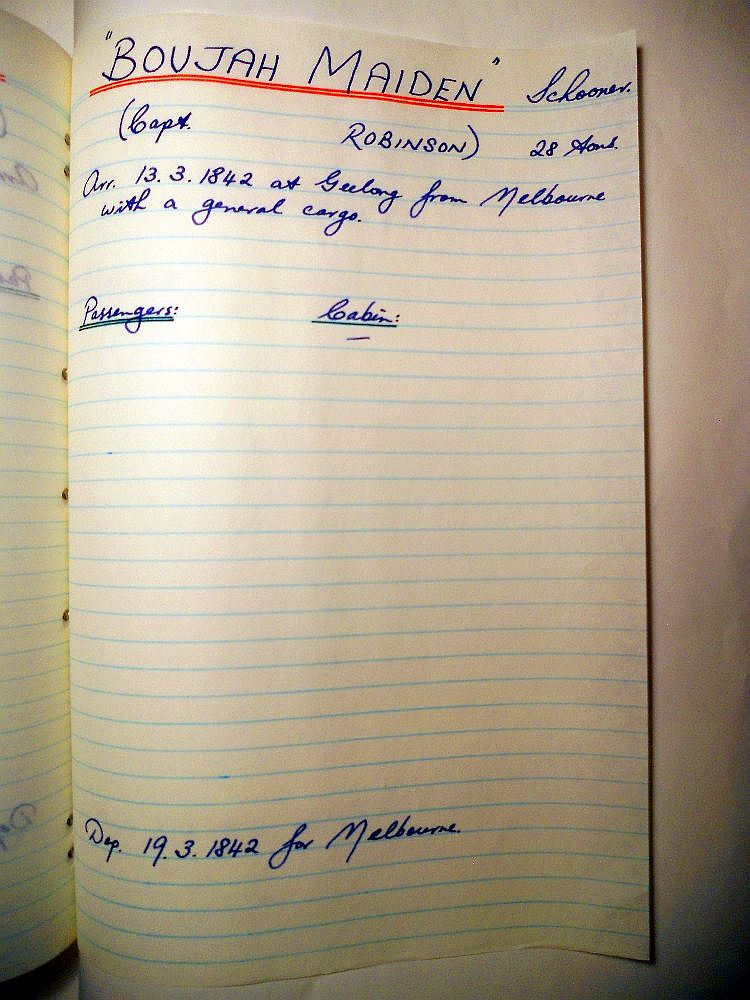 "BOUJAH MAIDEN" Schooner.
(Capt. ROBINSON) 28 tons.
Arr. 13.3.1842 at Geelong from Melbourne
with a general cargo.
Passengers: Cabin:
—
Dep. 19.3.1842 for Melbourne.